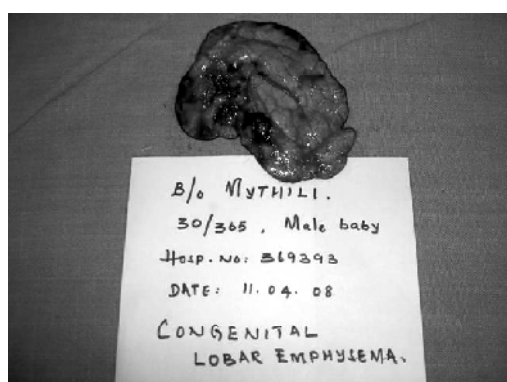 B/o MYTHILI.
30/365, Male baby
HOSP. NO: 369393
DATE: 11.04.08
CONGENITAL
LOBAR EMPHYSEMA.